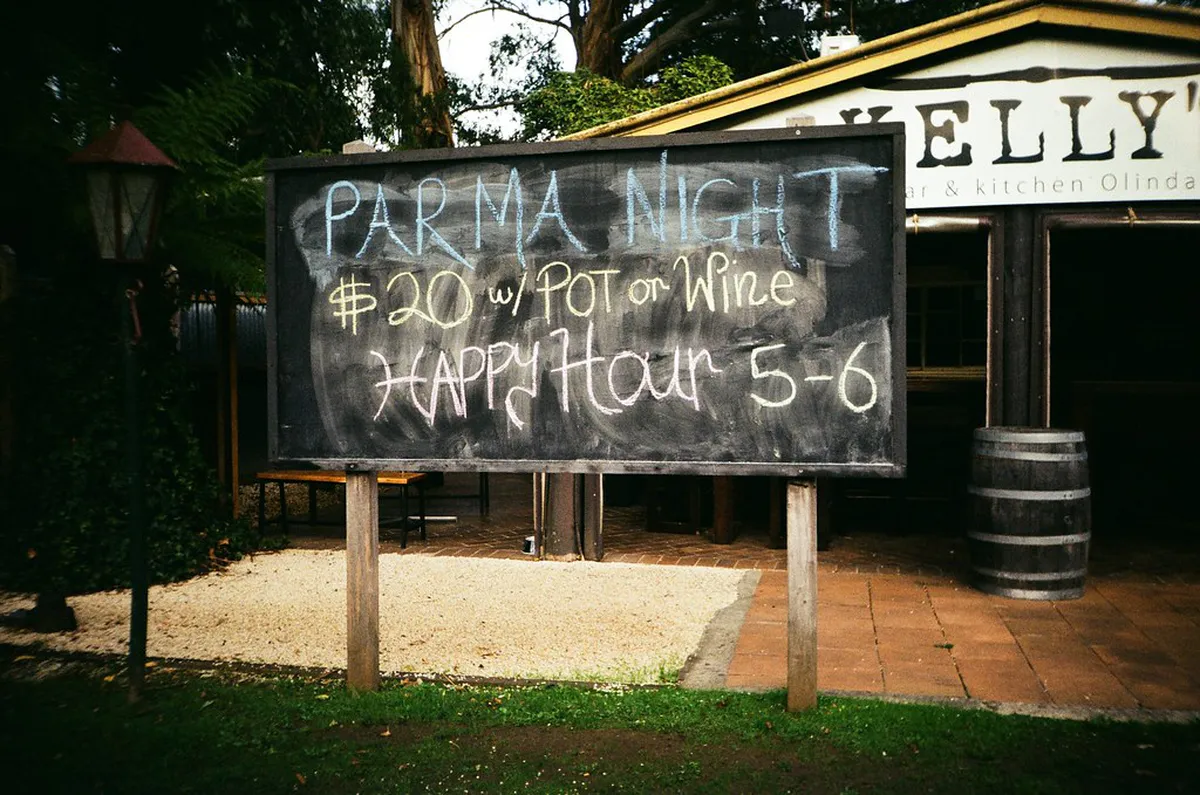 PARMA NIGHT
$20 w/ POT or Wine
HAPPY Hour 5-6
KELLY'
ar & kitchen Olinda